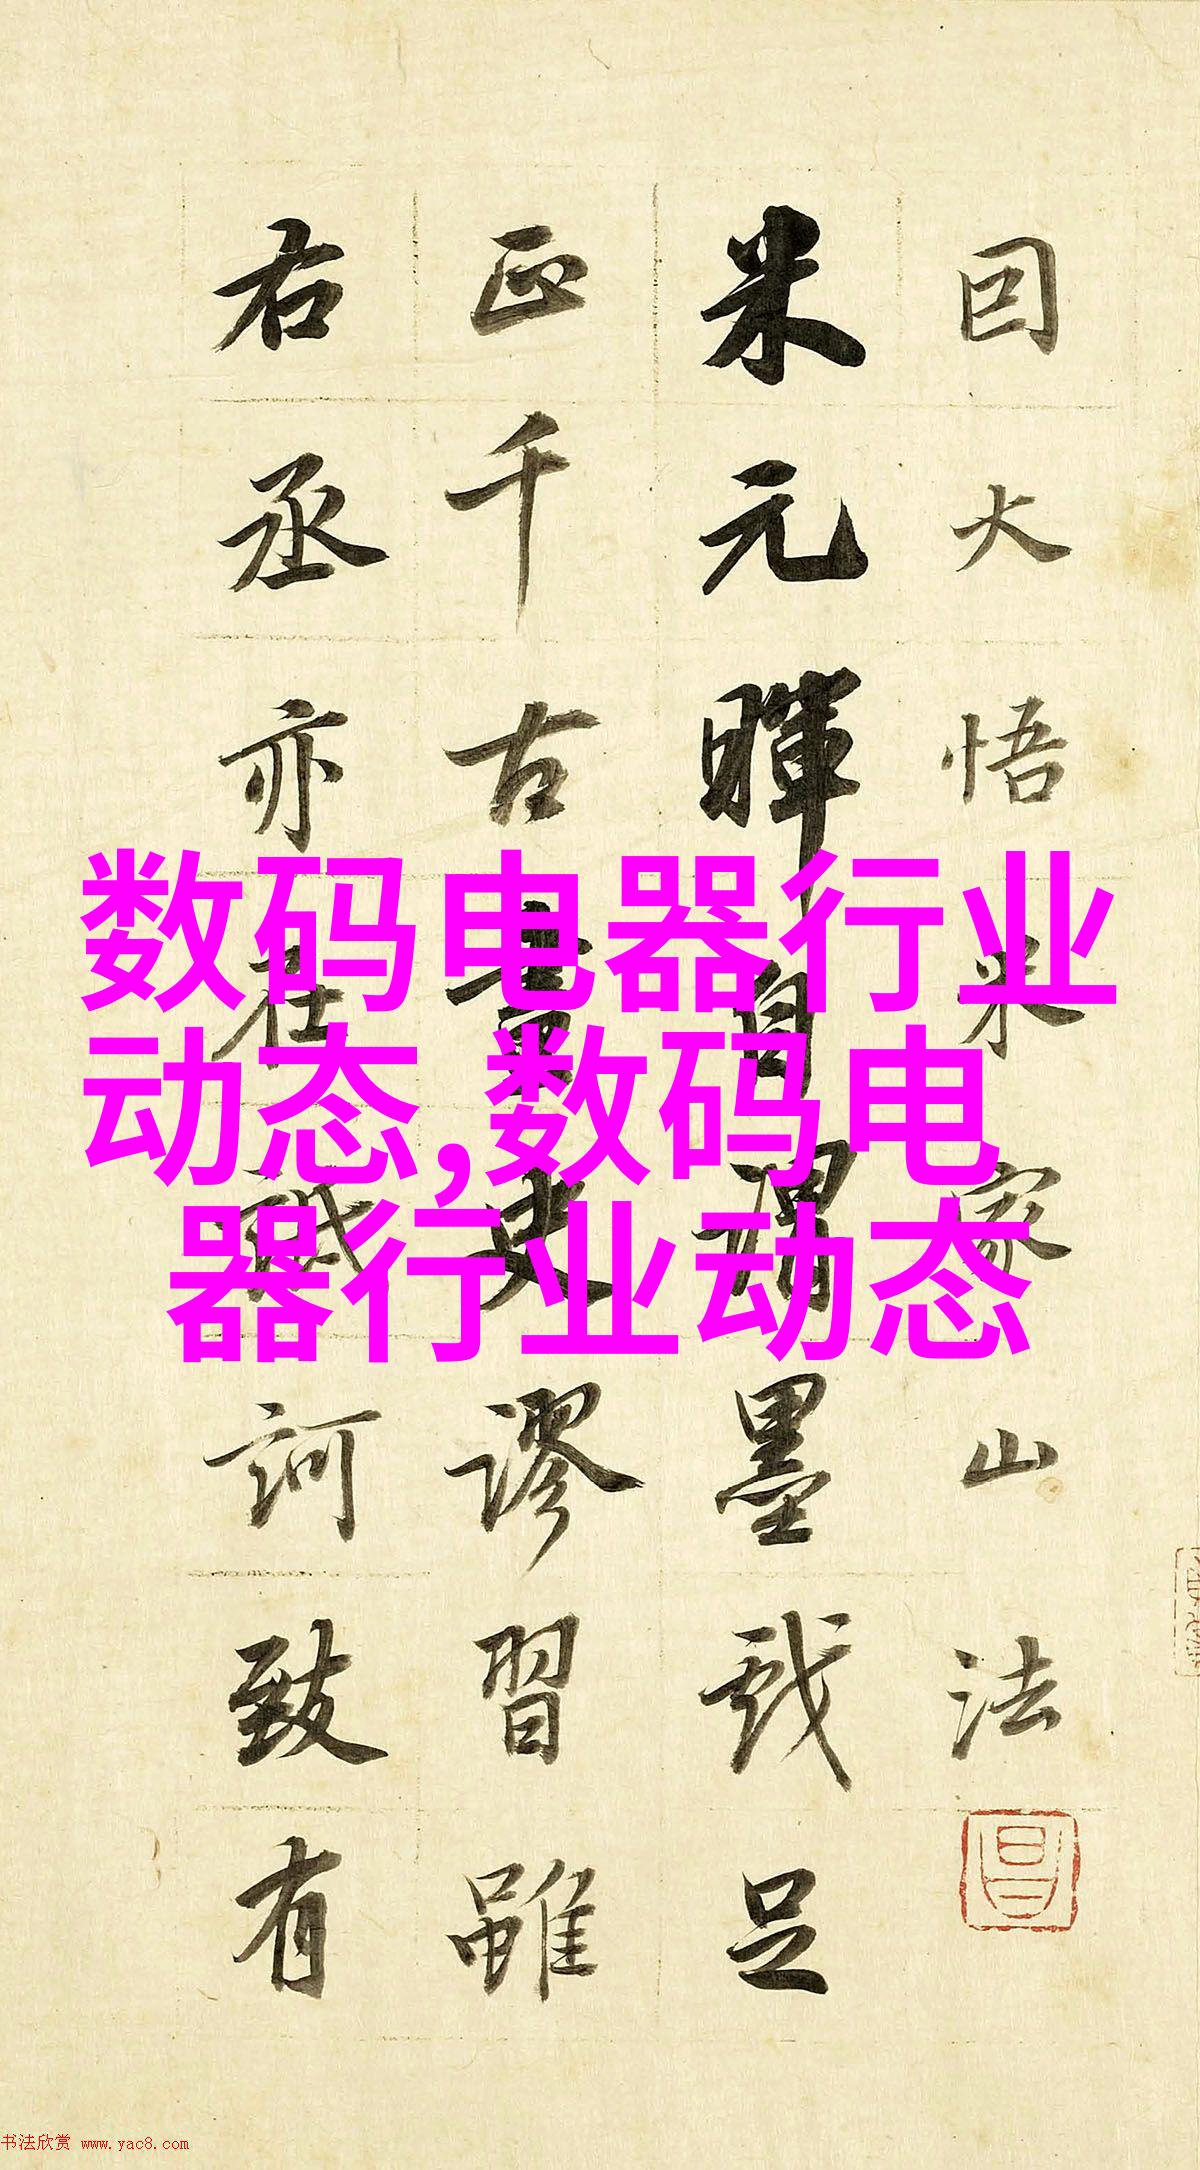 囙大悟米家山法
米元暉自謂墨戲足
正千古畫史謬習雖
右丞亦在詆訶致有
昌
数码电器行业
动态,数码电
器行业动态
书法欣赏 www.yac8.com